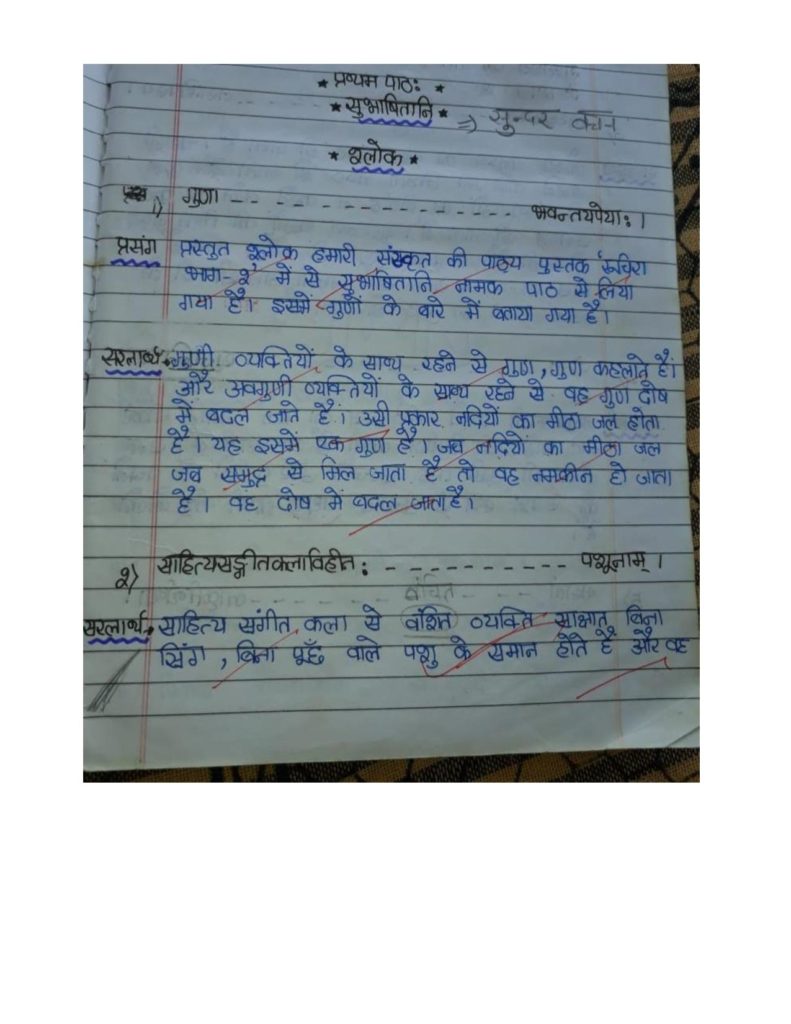 * प्रथम पाठः *
* सुभाषितानि * ⇒ सुन्दर वचन
* श्लोक *
1) गुणा - - - - - - - - - - - - - - - - भवन्तयपेयाः।
प्रसंग प्रस्तुत श्लोक हमारी संस्कृत की पाठ्य पुस्तक 'रूचिरा
भाग-२' में से सुभाषितानि नामक पाठ से लिया
गया है। इसमें गुणों के बारे में बताया गया है।
सरलार्थ- गुणी व्यक्तियों के साथ रहने से गुण, गुण कहलाते है।
और अवगुणी व्यक्तियों के साथ रहने से वह गुण दोष
में बदल जाते है। उसी प्रकार नदियों का मीठा जल होता
है। यह इसमें एक गुण है। जब नदियों का मीठा जल
जब समुद्र से मिल जाता है तो वह नमकीन हो जाता
है। वह दोष में बदल जाता है।
२) साहित्यसङ्गीतकलाविहीन: - - - - - - - - - - पशूनाम्।
वंचित
सरलार्थ- साहित्य संगीत कला से वंशित व्यक्ति साक्षात् बिना
सिंग, बिना पूँछ वाले पशु के समान होते है और वह